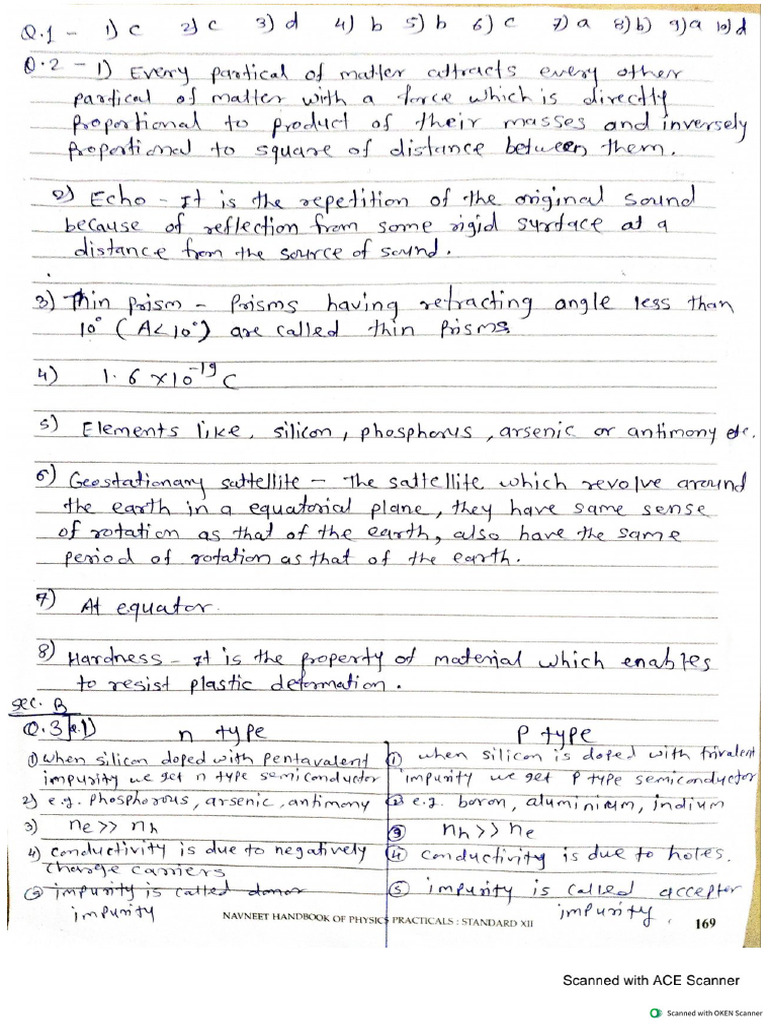 Q.1 - 1) c 2) c 3) d 4) b 5) b 6) c 7) a 8) b) 9) a 10) d
Q.2 - 1) Every partical of matter attracts every other
partical of matter with a force which is directly
proportional to product of their masses and inversely
proportional to square of distance between them.
2) Echo - It is the repetition of the original sound
because of reflection from some rigid surface at a
distance from the source of sound.
3) Thin prism - Prisms having refracting angle less than
10° (A<10°) are called thin Prisms
4) 1.6 x 10⁻¹⁹ C
5) Elements like, silicon, phosphorus, arsenic or antimony etc.
6) Geostationary sattellite - The sattellite which revolve around
the earth in a equatorial plane, they have same sense
of rotation as that of the earth, also have the same
period of rotation as that of the earth.
7) At equator.
8) Hardness - It is the property of material which enables
to resist plastic deformation.
Sec. B
Q.3 1) n type P type
① when silicon doped with pentavalent
impurity we get n type semiconductor
2) e.g. phosphorous, arsenic, antimony
3) ne >> nh
4) conductivity is due to negatively
charge carriers
⑤ impurity is called donor
impurity
① when silicon is doped with trivalent
impurity we get P type semiconductor
② e.g. boron, aluminium, indium
③ nh >> ne
④ conductivity is due to holes.
⑤ impurity is called accepter
impurity.
NAVNEET HANDBOOK OF PHYSICS PRACTICALS : STANDARD XII 169
Scanned with ACE Scanner
Scanned with OKEN Scanner